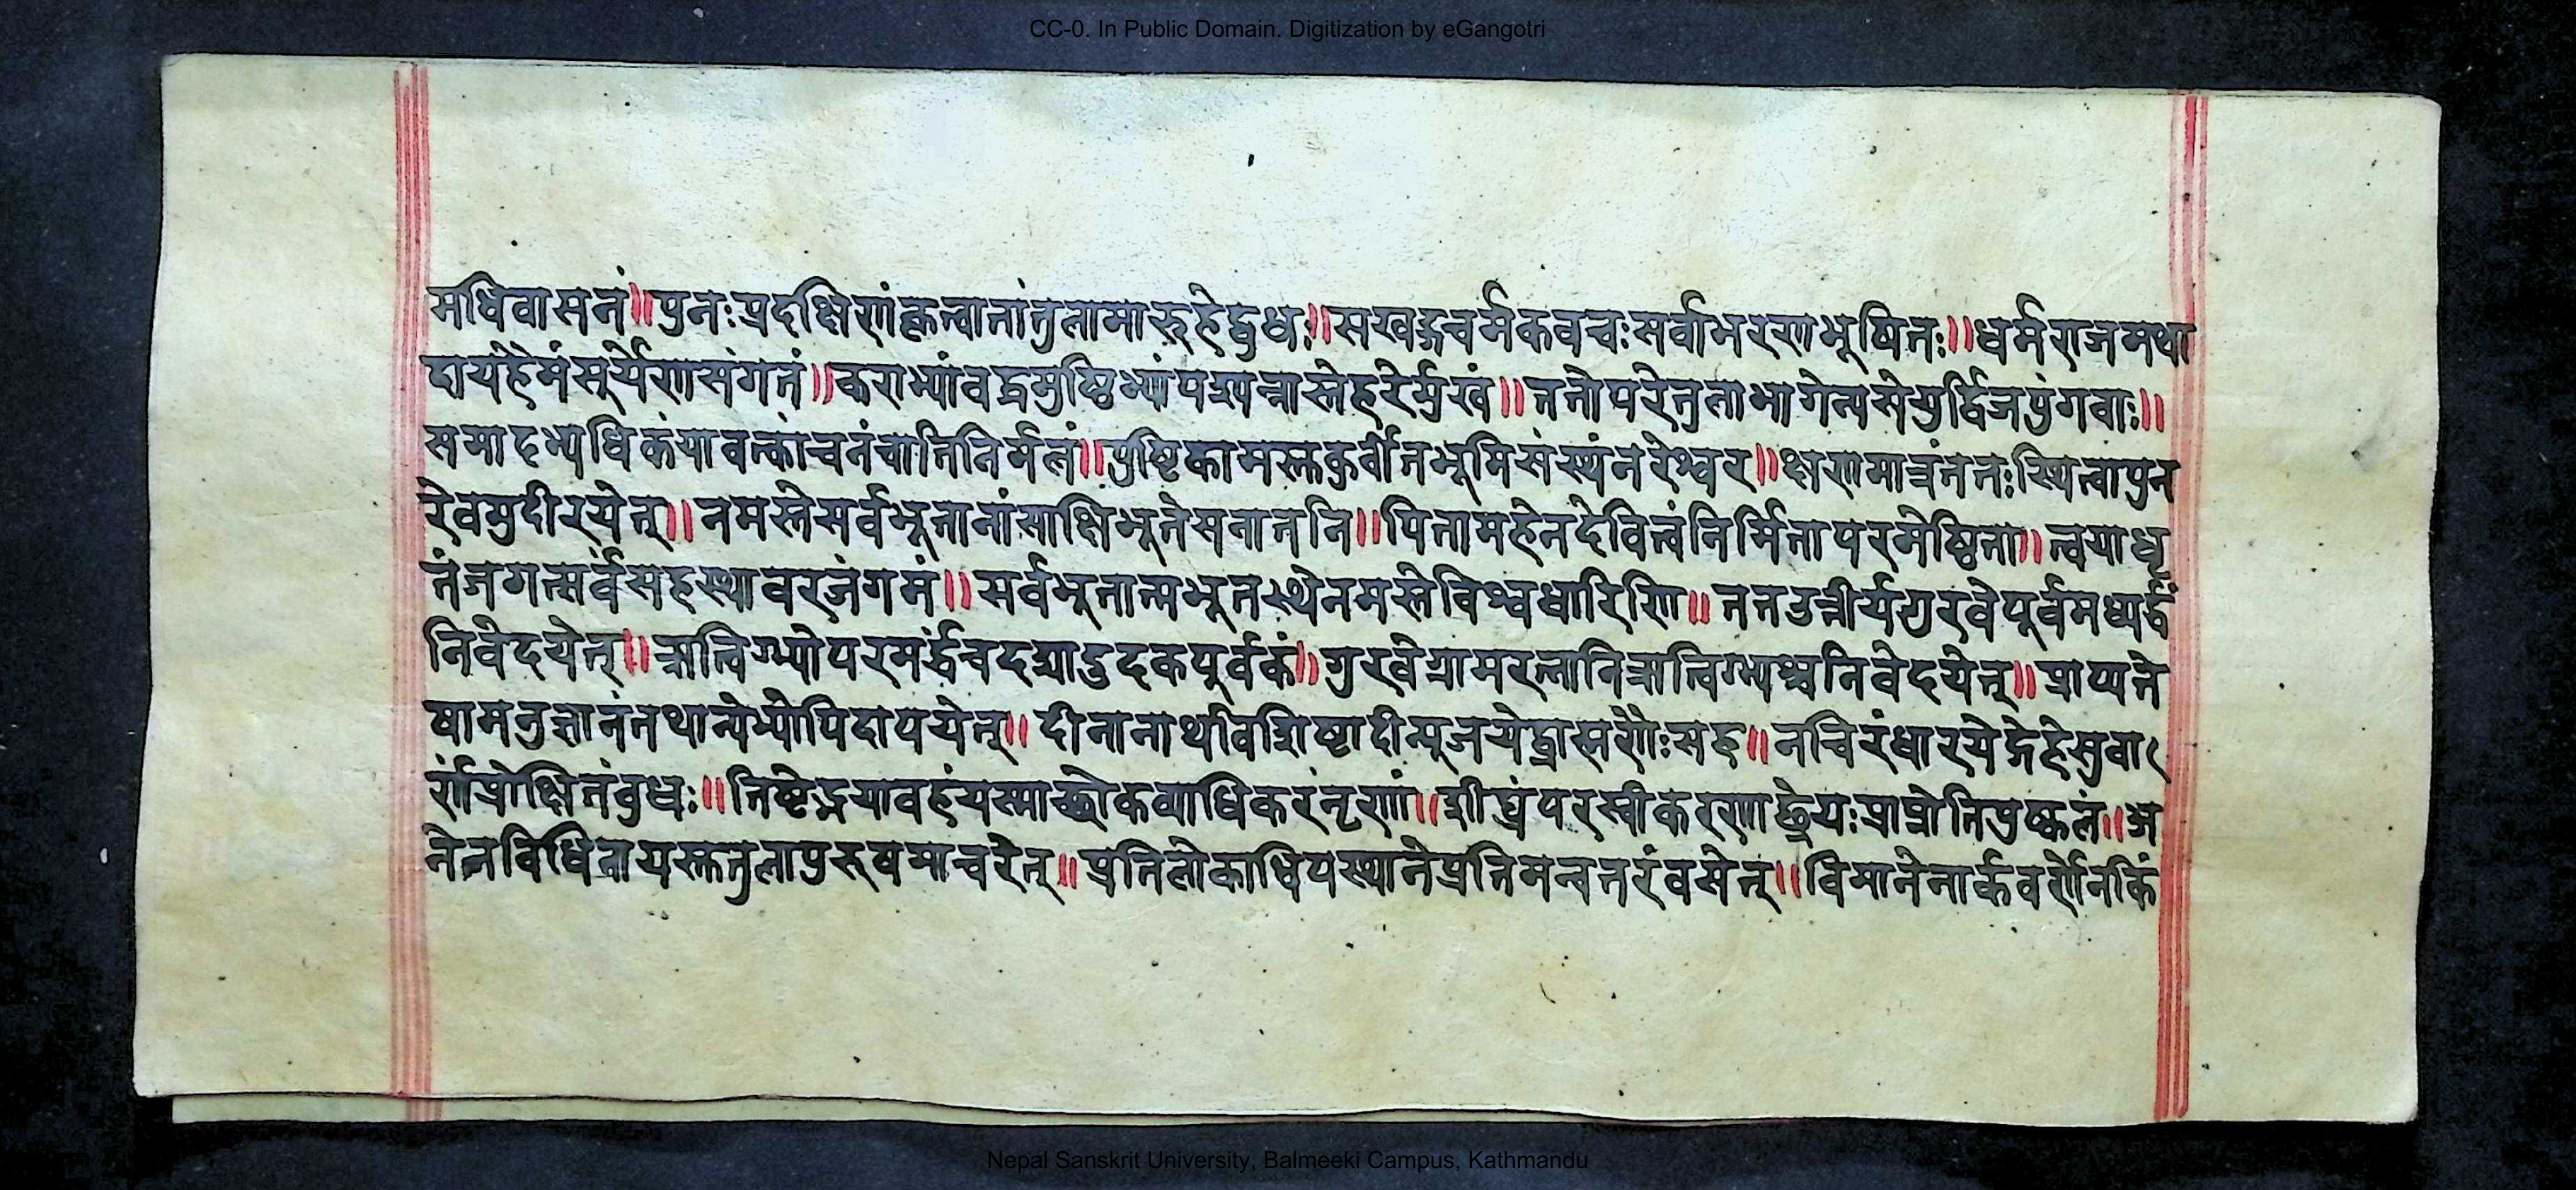 CC-0. In Public Domain. Digitization by eGangotri
मधिवासनं॥पुनःप्रदक्षिणंकृत्वातांतुलामारुहेद्बुधः॥सखड्गचर्मकवचःसर्वाभरणभूषितः॥धर्मराजमथा
दायहैमंसूर्येणसंगतं॥कराभ्यांबद्धमुष्टिभ्यांपश्यन्नास्तेहरेर्मुखं॥ततोपरेतुलाभागेन्यसेयुर्द्विजपुंगवाः॥
समादभ्यधिकंयावत्कांचनंचातिनिर्मलं॥पुष्टिकामस्तकुर्वीतभूमिसंस्थंनरेश्वर॥क्षणमात्रंततःस्थित्वापुन
रेवमुदीरयेत्॥नमस्तेसर्वभूतानांसाक्षिभूतेसनातनि॥पितामहेनदेवित्वंनिर्मितापरमेष्ठिना॥त्वयाधृ
तंजगत्सर्वंसहस्थावरजंगमं॥सर्वभूतात्मभूतस्थेनमस्तेविश्वधारिणि॥ततउत्तीर्यगुरवेपूर्वमध्यर्द्धं
निवेदयेत्॥ऋत्विग्भ्योपरमर्द्धंचदद्यादुदकपूर्वकं॥गुरवेग्रामरत्नानिऋत्विग्भ्यश्चनिवेदयेत्॥प्राप्यते
षामनुज्ञानंतथान्येभ्योपिदापयेत्॥दीनानाथविशिष्टादीत्पूजयेद्ब्राह्मणैःसह॥नचिरंधारयेद्गेहेसुवा
र्णंप्रोक्षितंबुधः॥तिष्टेद्भयावहंयस्माच्छोकव्याधिकरंनृणां॥शीघ्रंपरस्वीकरणाछ्रेयःप्राप्नोतिपुष्कलं॥अ
नेनविधिनायस्ततुलापुरुषमाचरेत्॥प्रतिलोकाधिपस्थानेप्रतिमन्वन्तरंवसेत्॥विमानेनार्कवर्णेनकिं
Nepal Sanskrit University, Balmeeki Campus, Kathmandu